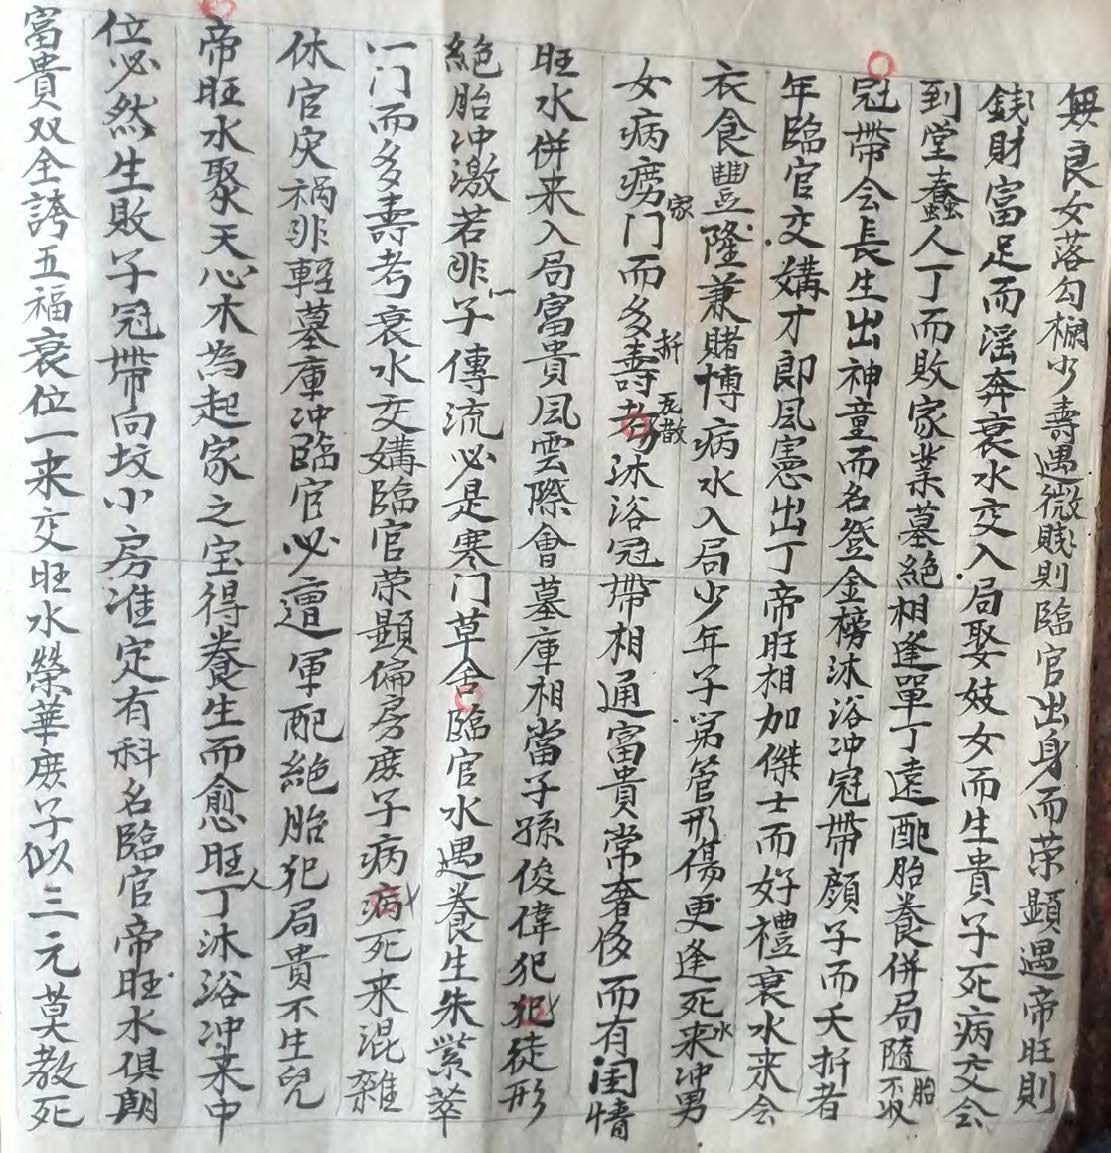 無良女落勾欄少壽遇微賤則臨官出身而荣顕遇帝旺則
錢財富足而滛奔衰水交入局娶妓女而生貴子死病交会
到堂蠢人丁而敗家業墓絶相逢單丁遠配胎養併局隨胎不収
冠帶会長生出神童而名登金榜沐浴冲冠帶顔子而夭折者
年臨官交媾才郎風憲出丁帝旺相加傑士而好禮衰水来会
衣食豐隆兼賭博病水入局少年子弟管形傷更逢死来水冲男
女病痨门家而多壽折考瓦散沐浴冠帶相通富貴常奢侈而有闺情
旺水併来入局富貴風雲際會墓庫相當子孫俊偉犯犯徒形
絶胎冲激若非一子傳流必是寒门草舍臨官水遇養生朱紫萃
一门而多壽考衰水交媾臨官荣顕偏房庶子病病死来混雜
休官灾祸非輕墓庫冲臨官必遭軍配絶胎犯局貴不生兒
帝旺水聚天心木為起家之宝得養生而愈旺人丁沐浴冲来中
位必然生敗子冠帶向坟小房准定有科名臨官帝旺水俱朝
富貴双全誇五福衰位一来交旺水榮華庶子似三元莫教死